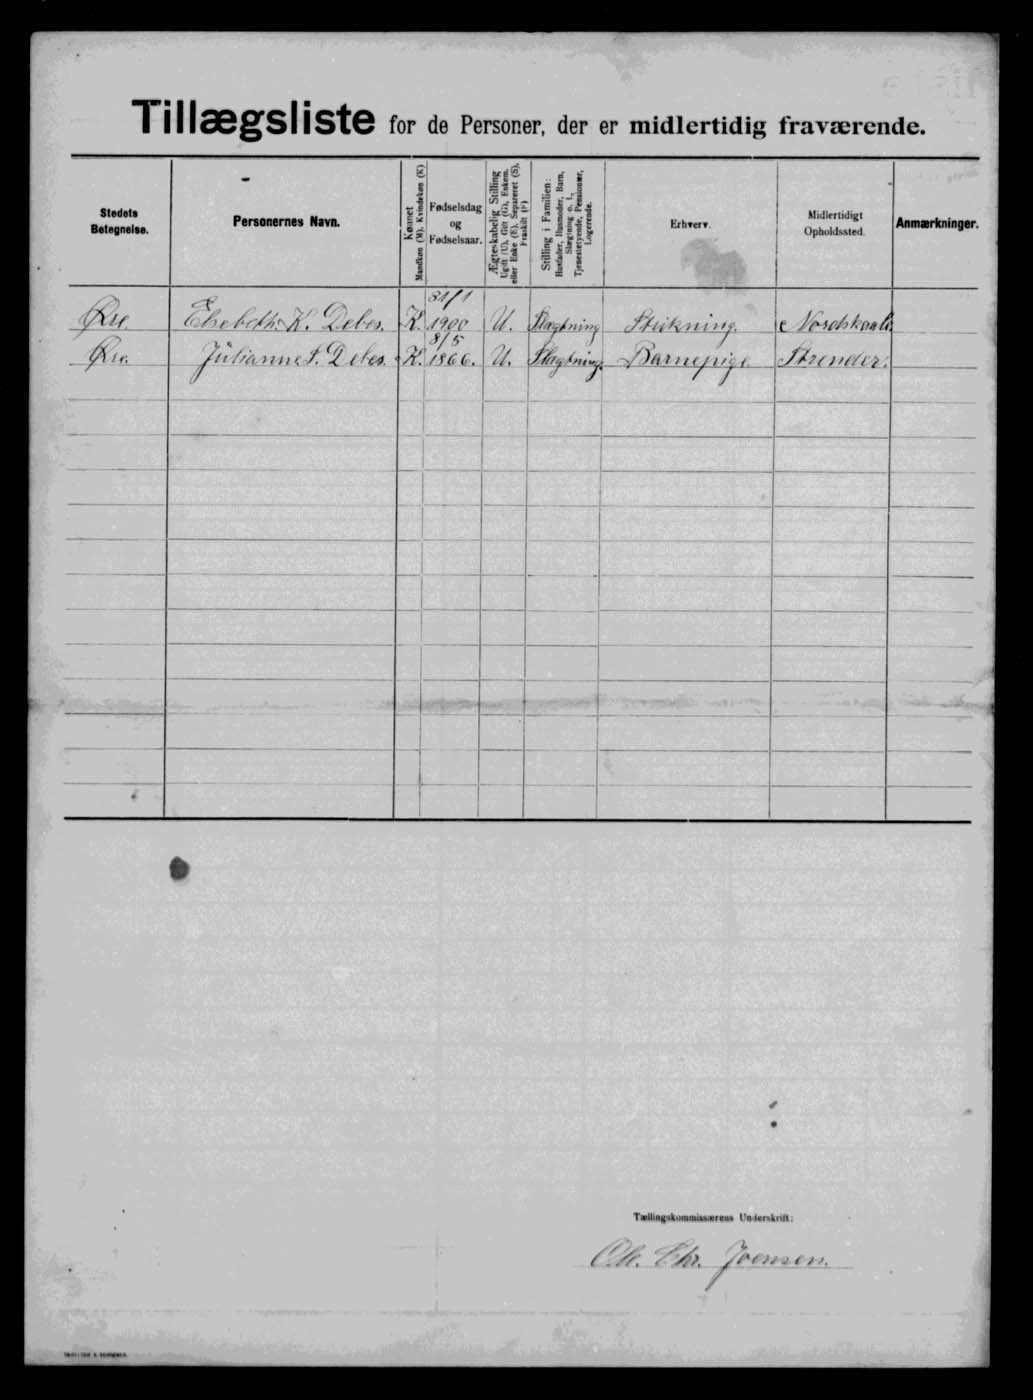 Tillægsliste for de Personer, der er midlertidig fraværende.
Stedets Betegnelse.
Personernes Navn.
Kønnet Mandkøn (M). Kvindekøn (K)
Fødselsdag og Fødselsaar.
Ægteskabelig Stilling Ugift (U), Gift (G), Enkem. eller Enke (E), Separeret (S), Fraskilt (F)
Stilling i Familien: Husfader, Husmoder, Barn, Slægtning o. l., Tjenestetyende, Pensionær, Logerende.
Erhverv.
Midlertidigt Opholdssted.
Anmærkninger.
Øre. Elsebeth K. Debes. K. 31/1 1900 U. Slægtning Strikning. Nordskaale
Øre. Julianne S. Debes. K. 8/5 1866. U. Slægtning. Barnepige Strender.
Tællingskommissærens Underskrift:
Ole. Chr. Joensen.